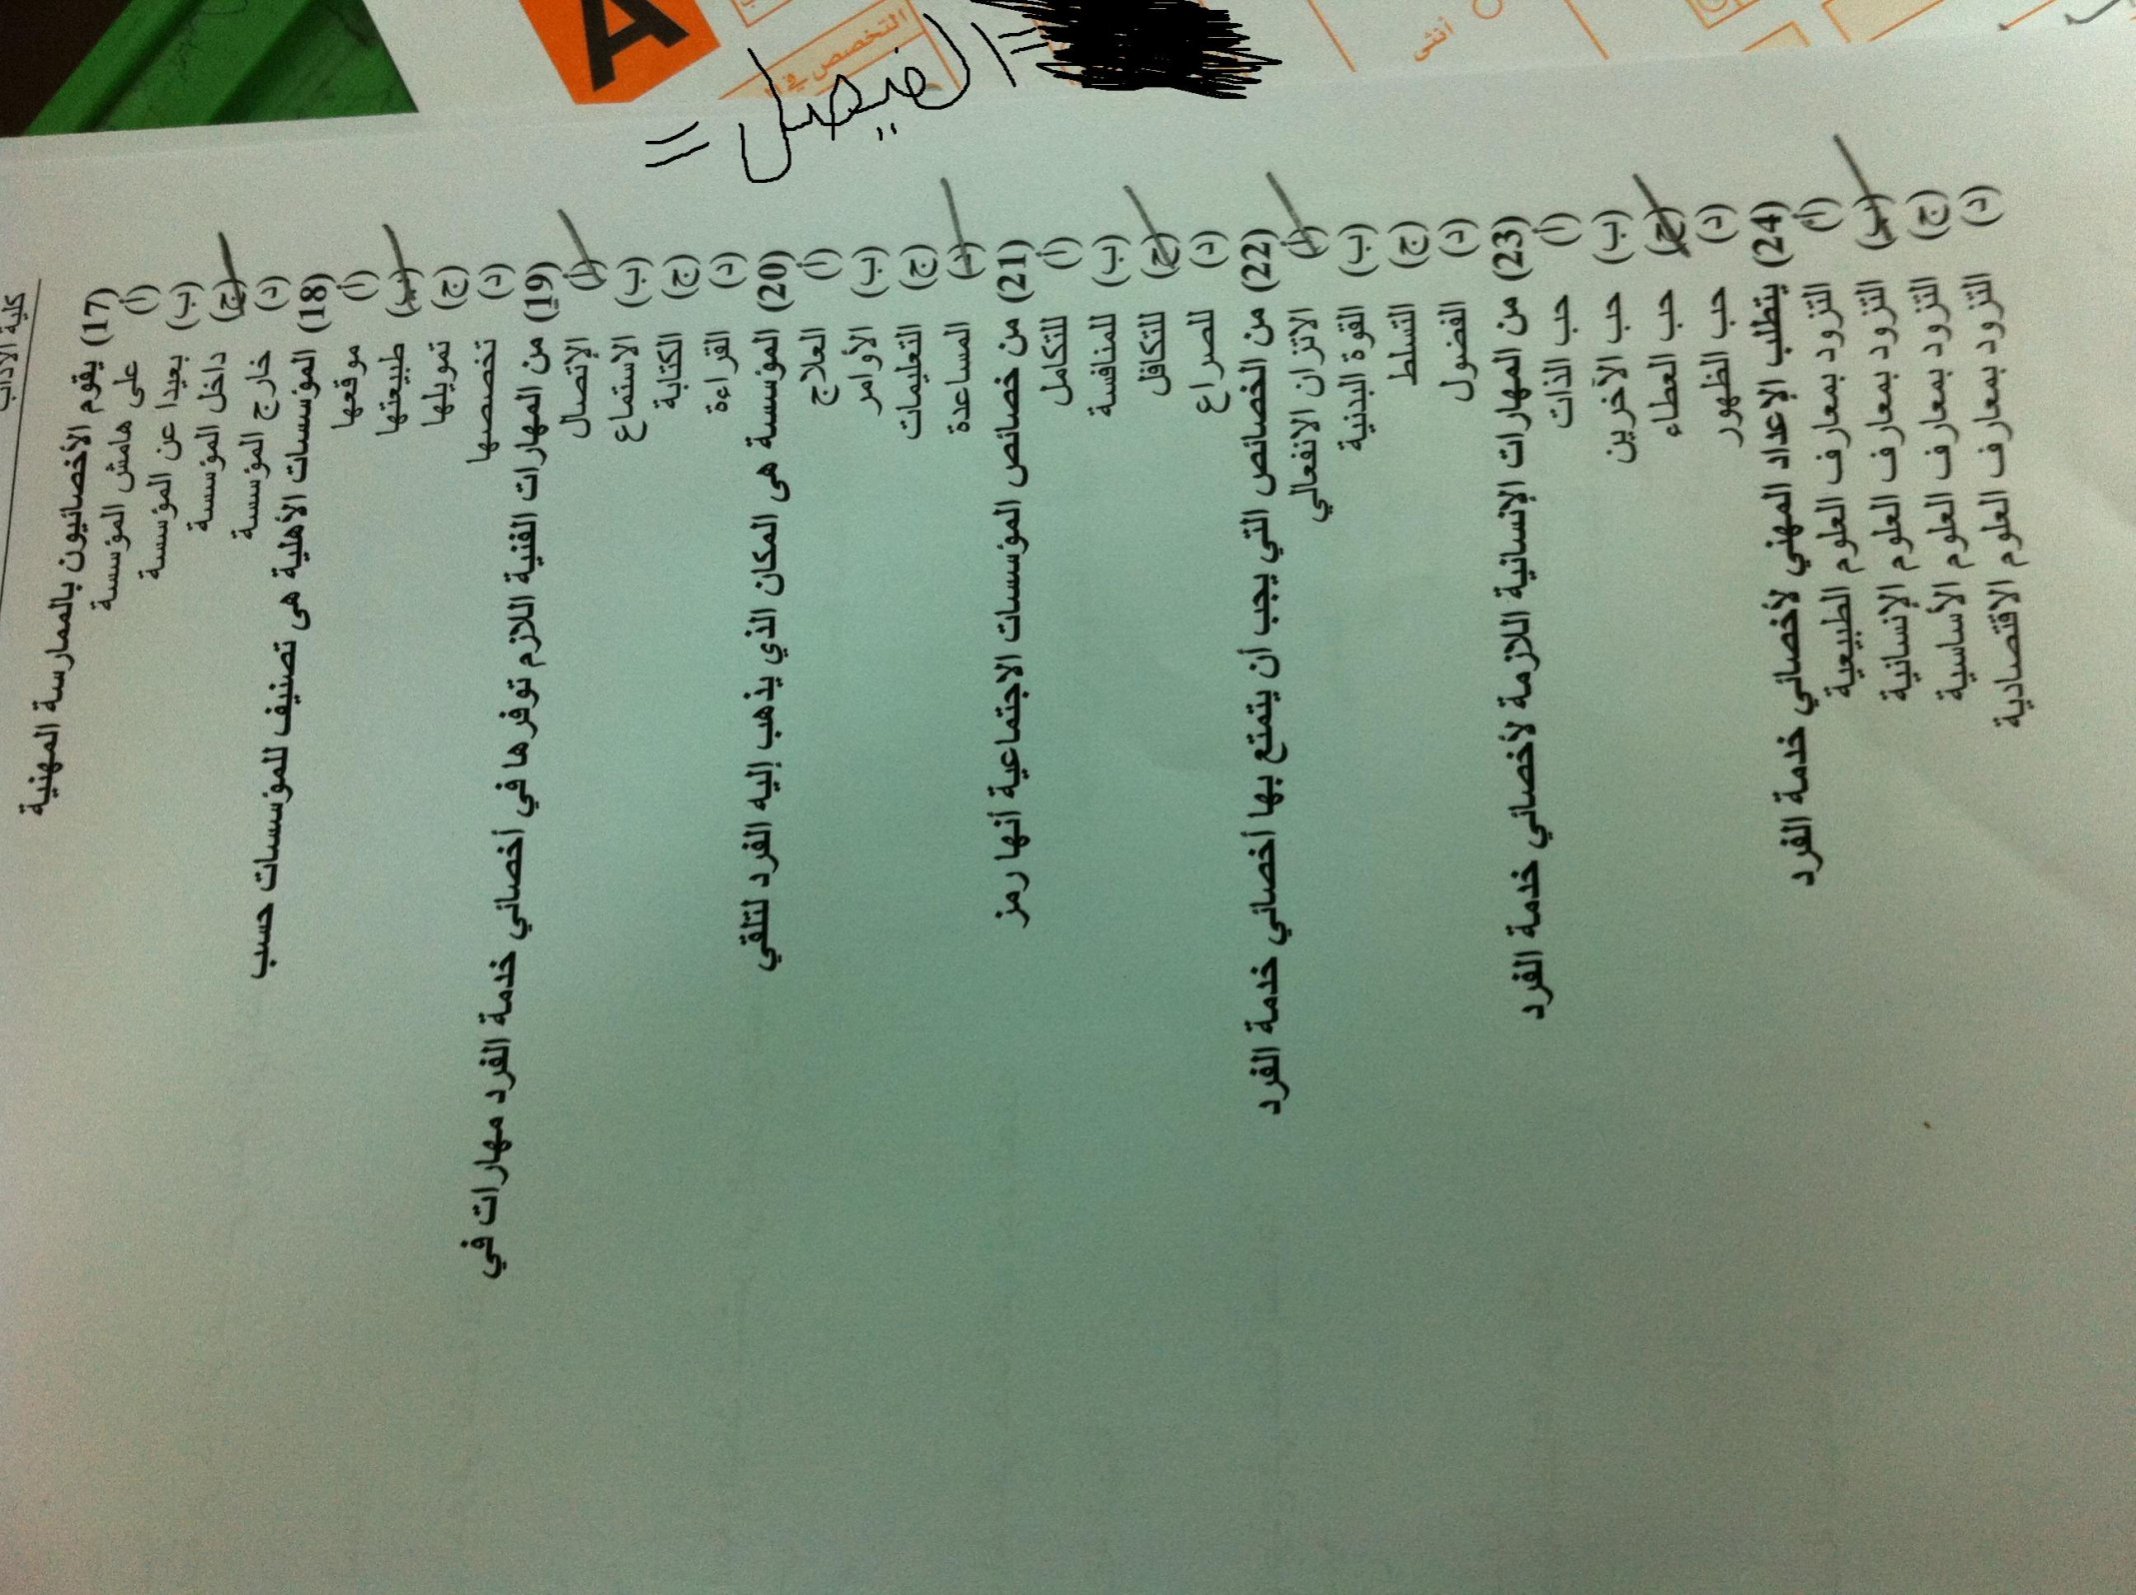 A
التخصص في
انثى
=الفيصل=
كلية الآداب
(17) يقوم الأخصائيون بالممارسة المهنية
(أ) على هامش المؤسسة
(ب) بعيدا عن المؤسسة
(ج) داخل المؤسسة
(د) خارج المؤسسة
(18) المؤسسات الأهلية هى تصنيف للمؤسسات حسب
(أ) موقعها
(ب) طبيعتها
(ج) تمويلها
(د) تخصصها
(19) من المهارات الفنية اللازم توفرها في أخصائي خدمة الفرد مهارات في
(أ) الإتصال
(ب) الاستماع
(ج) الكتابة
(د) القراءة
(20) المؤسسة هى المكان الذي يذهب إليه الفرد لتلقي
(أ) العلاج
(ب) الأوامر
(ج) التعليمات
(د) المساعدة
(21) من خصائص المؤسسات الاجتماعية أنها رمز
(أ) للتكامل
(ب) للمنافسة
(ج) للتكافل
(د) للصراع
(22) من الخصائص التي يجب أن يتمتع بها أخصائي خدمة الفرد
(أ) الاتزان الانفعالي
(ب) القوة البدنية
(ج) التسلط
(د) الفضول
(23) من المهارات الإنسانية اللازمة لأخصائي خدمة الفرد
(أ) حب الذات
(ب) حب الآخرين
(ج) حب العطاء
(د) حب الظهور
(24) يتطلب الإعداد المهني لأخصائي خدمة الفرد
(أ) التزود بمعارف العلوم الطبيعية
(ب) التزود بمعارف العلوم الإنسانية
(ج) التزود بمعارف العلوم الأساسية
(د) التزود بمعارف العلوم الاقتصادية